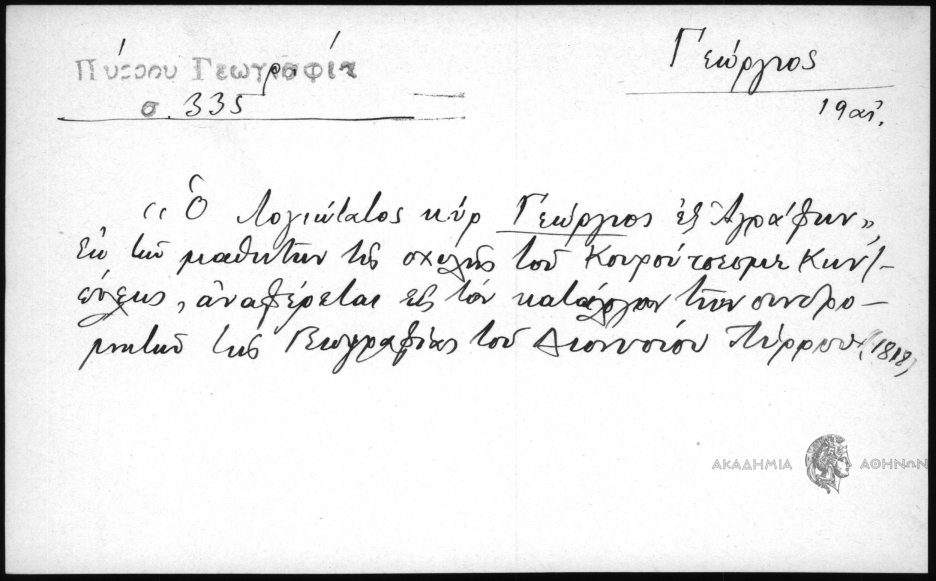 Πύρρου Γεωγραφία
σ. 335
Γεώργιος
19 αἰ.
«Ὁ λογιώτατος κύρ Γεώργιος ἐξ Ἀγράφων»,
ἐκ τῶν μαθητῶν τῆς σχολῆς τοῦ Κουρούτσεσμε Κων/-
πόλεως, ἀναφέρεται εἰς τόν κατάλογον τῶν συνδρο-
μητῶν τῆς Γεωγραφίας τοῦ Διονυσίου Πύρρου (1818)
ΑΚΑΔΗΜΙΑ ΑΘΗΝΩΝ